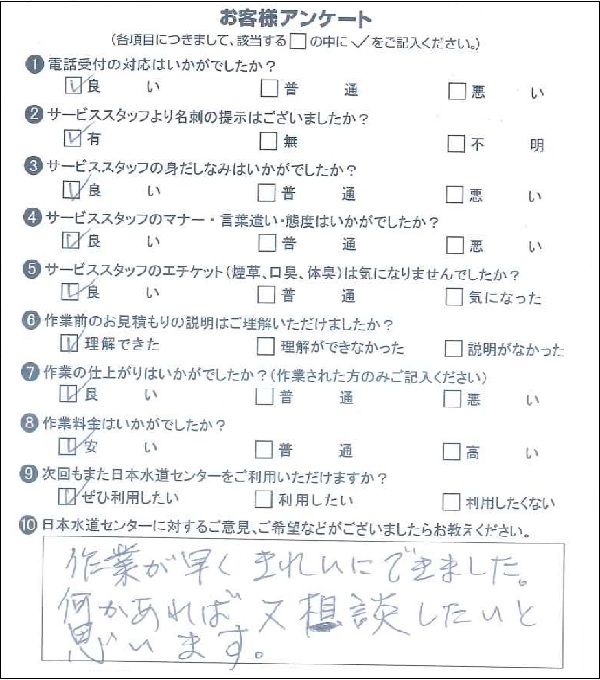 お客様アンケート
(各項目につきまして、該当する□の中に✓をご記入ください。)
❶電話受付の対応はいかがでしたか?
☑良い □普通 □悪い
❷サービススタッフより名刺の提示はございましたか?
☑有 □無 □不明
❸サービススタッフの身だしなみはいかがでしたか?
☑良い □普通 □悪い
❹サービススタッフのマナー・言葉遣い・態度はいかがでしたか?
☑良い □普通 □悪い
❺サービススタッフのエチケット(煙草、口臭、体臭)は気になりませんでしたか?
☑良い □普通 □気になった
❻作業前のお見積もりの説明はご理解いただけましたか?
☑理解できた □理解ができなかった □説明がなかった
❼作業の仕上がりはいかがでしたか?(作業された方のみご記入ください)
☑良い □普通 □悪い
❽作業料金はいかがでしたか?
☑安い □普通 □高い
❾次回もまた日本水道センターをご利用いただけますか?
☑ぜひ利用したい □利用したい □利用したくない
❿日本水道センターに対するご意見、ご希望などがございましたらお教えください。
作業が早くきれいにできました。
何かあれば又想談したいと
思います。